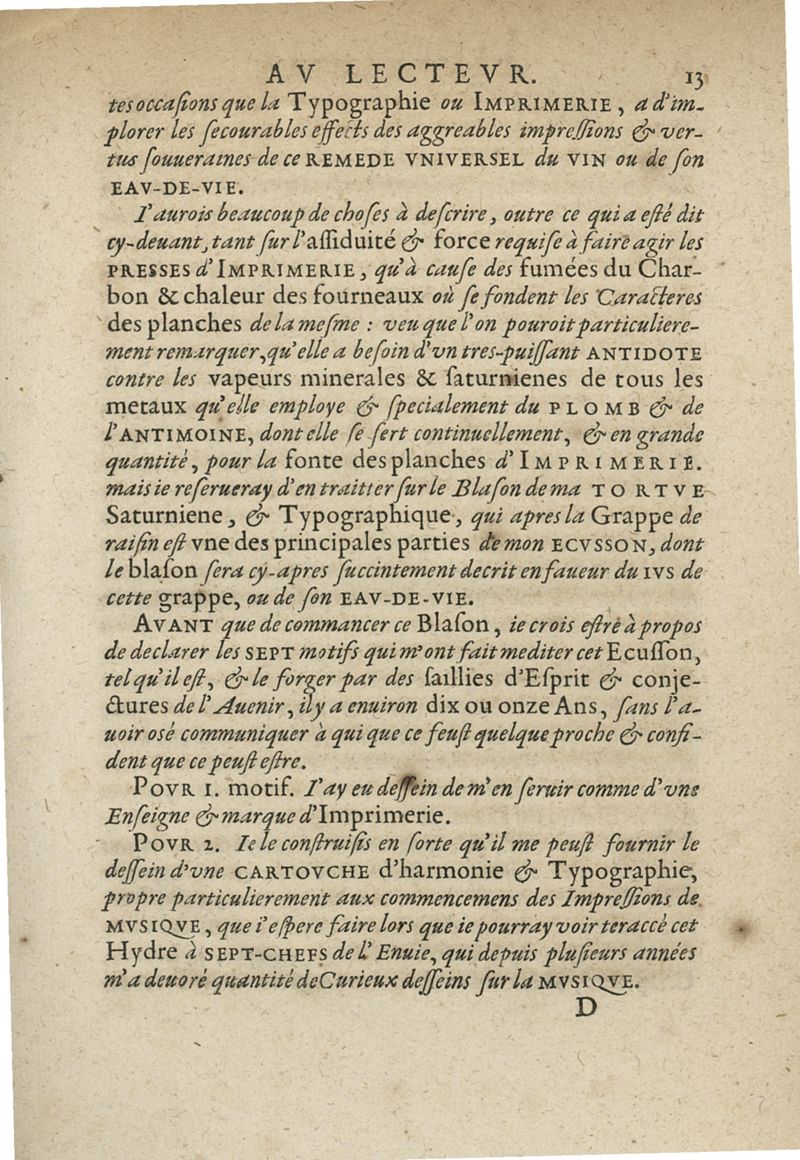 AV LECTEVR. 13
tes occaſions que la Typographie ou IMPRIMERIE, a d'im-
plorer les ſecourables effects des aggreables impreſſions & ver-
tus ſouueraines de ce REMEDE VNIVERSEL du VIN ou de ſon
EAV-DE-VIE.
I'aurois beaucoup de choſes à deſcrire, outre ce qui a eſté dit
cy-deuant, tant ſur l'aſſiduité & force requiſe à faire agir les
PRESSES d'IMPRIMERIE, qu'à cauſe des fumées du Char-
bon & chaleur des fourneaux où ſe fondent les Caracteres
des planches de la meſme : veu que l'on pouroit particuliere-
ment remarquer, qu'elle a beſoin d'vn tres-puiſſant ANTIDOTE
contre les vapeurs minerales & ſaturnienes de tous les
metaux qu'elle employe & ſpecialement du PLOMB & de
l'ANTIMOINE, dont elle ſe ſert continuellement, & en grande
quantité, pour la fonte des planches d'IMPRIMERIE.
mais ie reſerueray d'en traitter ſur le Blaſon de ma TORTVE
Saturniene, & Typographique, qui apres la Grappe de
raiſin eſt vne des principales parties de mon ECVSSON, dont
le blaſon ſera cy-apres ſuccintement decrit en faueur du IVS de
cette grappe, ou de ſon EAV-DE-VIE.
AVANT que de commancer ce Blaſon, ie crois eſtre à propos
de declarer les SEPT motifs qui m'ont fait mediter cet Ecuſſon,
tel qu'il eſt, & le forger par des ſaillies d'Eſprit & conje-
ctures de l'Auenir, il y a enuiron dix ou onze Ans, ſans l'a-
uoir osé communiquer à qui que ce feuſt quelque proche & confi-
dent que ce peuſt eſtre.
POVR 1. motif. I'ay eu deſſein de m'en ſeruir comme d'vne
Enſeigne & marque d'Imprimerie.
POVR 2. Ie le conſtruiſis en ſorte qu'il me peuſt fournir le
deſſein d'vne CARTOVCHE d'harmonie & Typographie,
propre particulierement aux commencemens des Impreſſions de
MVSIQVE, que i'eſpere faire lors que ie pourray voir teraccé cet
Hydre à SEPT-CHEFS de l'Enuie, qui depuis pluſieurs années
m'a deuoré quantité de Curieux deſſeins ſur la MVSIQVE.
D